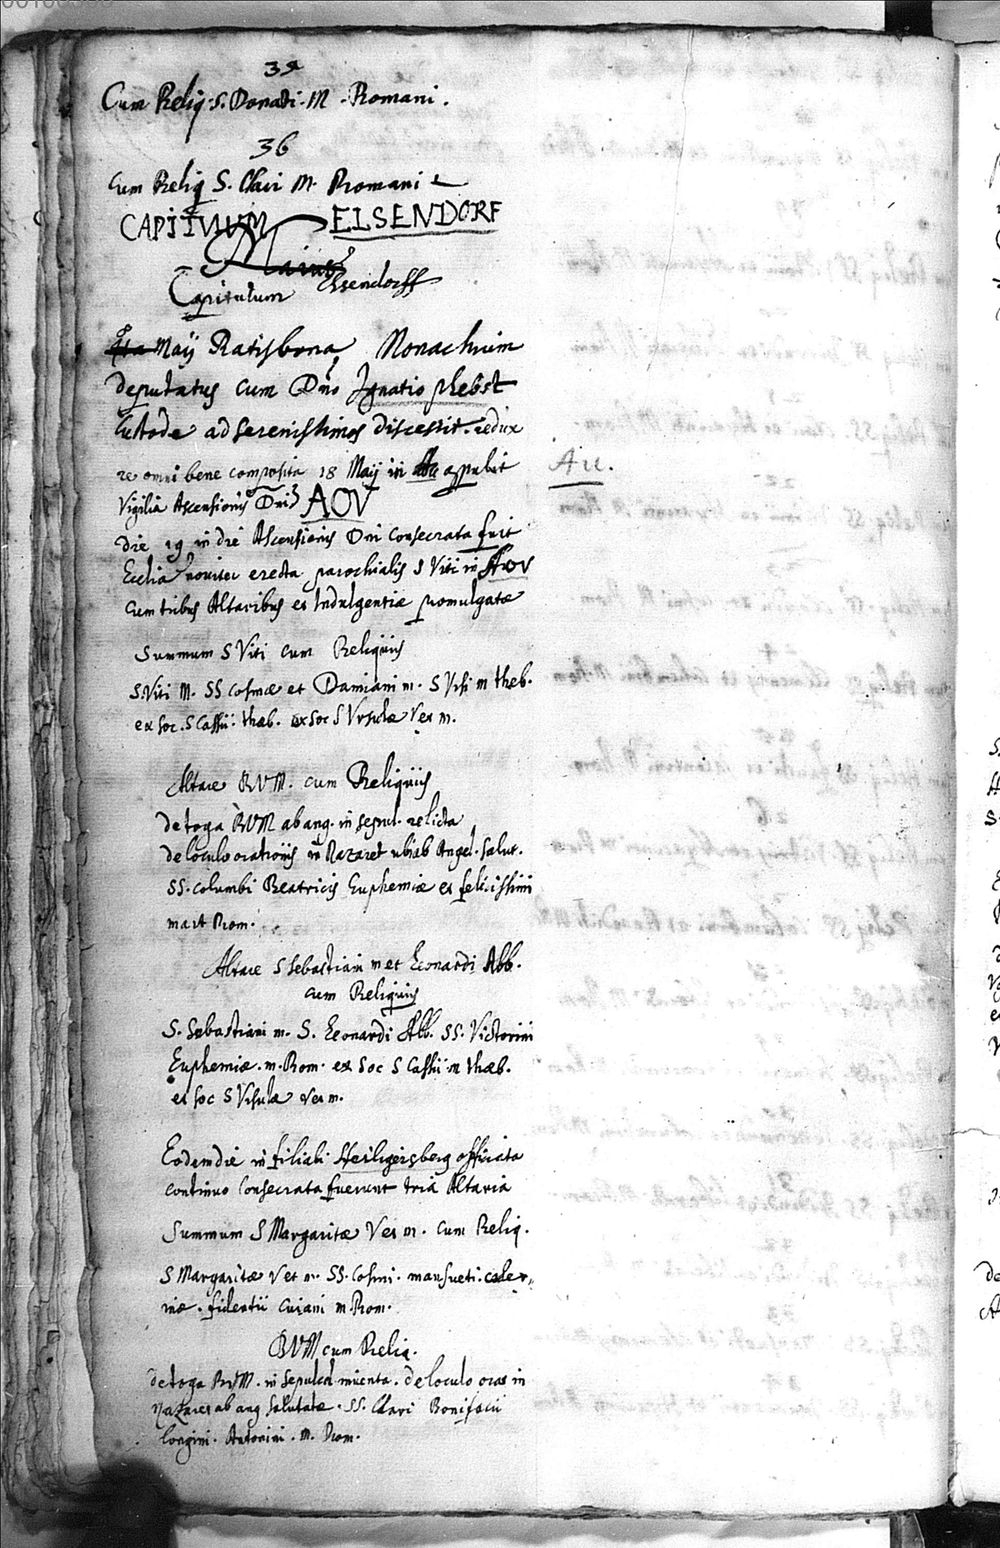 35
Cum Reliq. S. Donati. M. Romani.
36
Cum Reliq S. Clari M. Romani
CAPITULUM ELSENDORF
Capitulum Elsendorff
Maij Ratisbona Monachium
deputatus cum Dno Ignatio phebst
Custode ad Serenissimos discessit. redux
re omni bene composita 18 Maij in Au appulit
Au.
Vigilia Ascensionis Dni AOV
die 19 in die Ascensionis Dni consecrata fuit
Ecclia noviter erecta parochialis S Viti in Aov
cum tribus Altaribus et Indulgentiæ promulgatæ
Summum S Viti cum Reliquiis
S. Viti M. SS Cosmæ et Damiani m. S Vrsi m theb.
ex soc. S Cassii. thæb. ex soc S Vrsulæ V et m.
Altare BVM. cum Reliquiis
de toga BVM ab ang. in sepul. relicta
de loculo orationis in Nazaret ubi ab Angel. salut.
SS. Columbi Beatricis Euphemiæ et felicissimi
mart Rom.
Altare S Sebastiani m et Leonardi Abb.
cum Reliquiis
S. Sebastiani m. S. Leonardi Abb. SS. Victorini
Euphemiæ. m. Rom. ex soc S Cassii m thæb.
et soc S Vrsulæ V et m.
Eodem die in filiali Heiligersberg officiata
continuo consecrata fuerunt tria Altaria
Summum S Margaritæ V et m. cum Reliq.
S Margaritæ V et m. SS. Cosmi. mansueti.
fidentii m Rom.
BVM cum Reliq.
de toga BVM. in sepulch. de loculo orat in
Nazaret ab ang salutatæ. SS. Clari Bonifacii
Longini. Antonini. m. Rom.